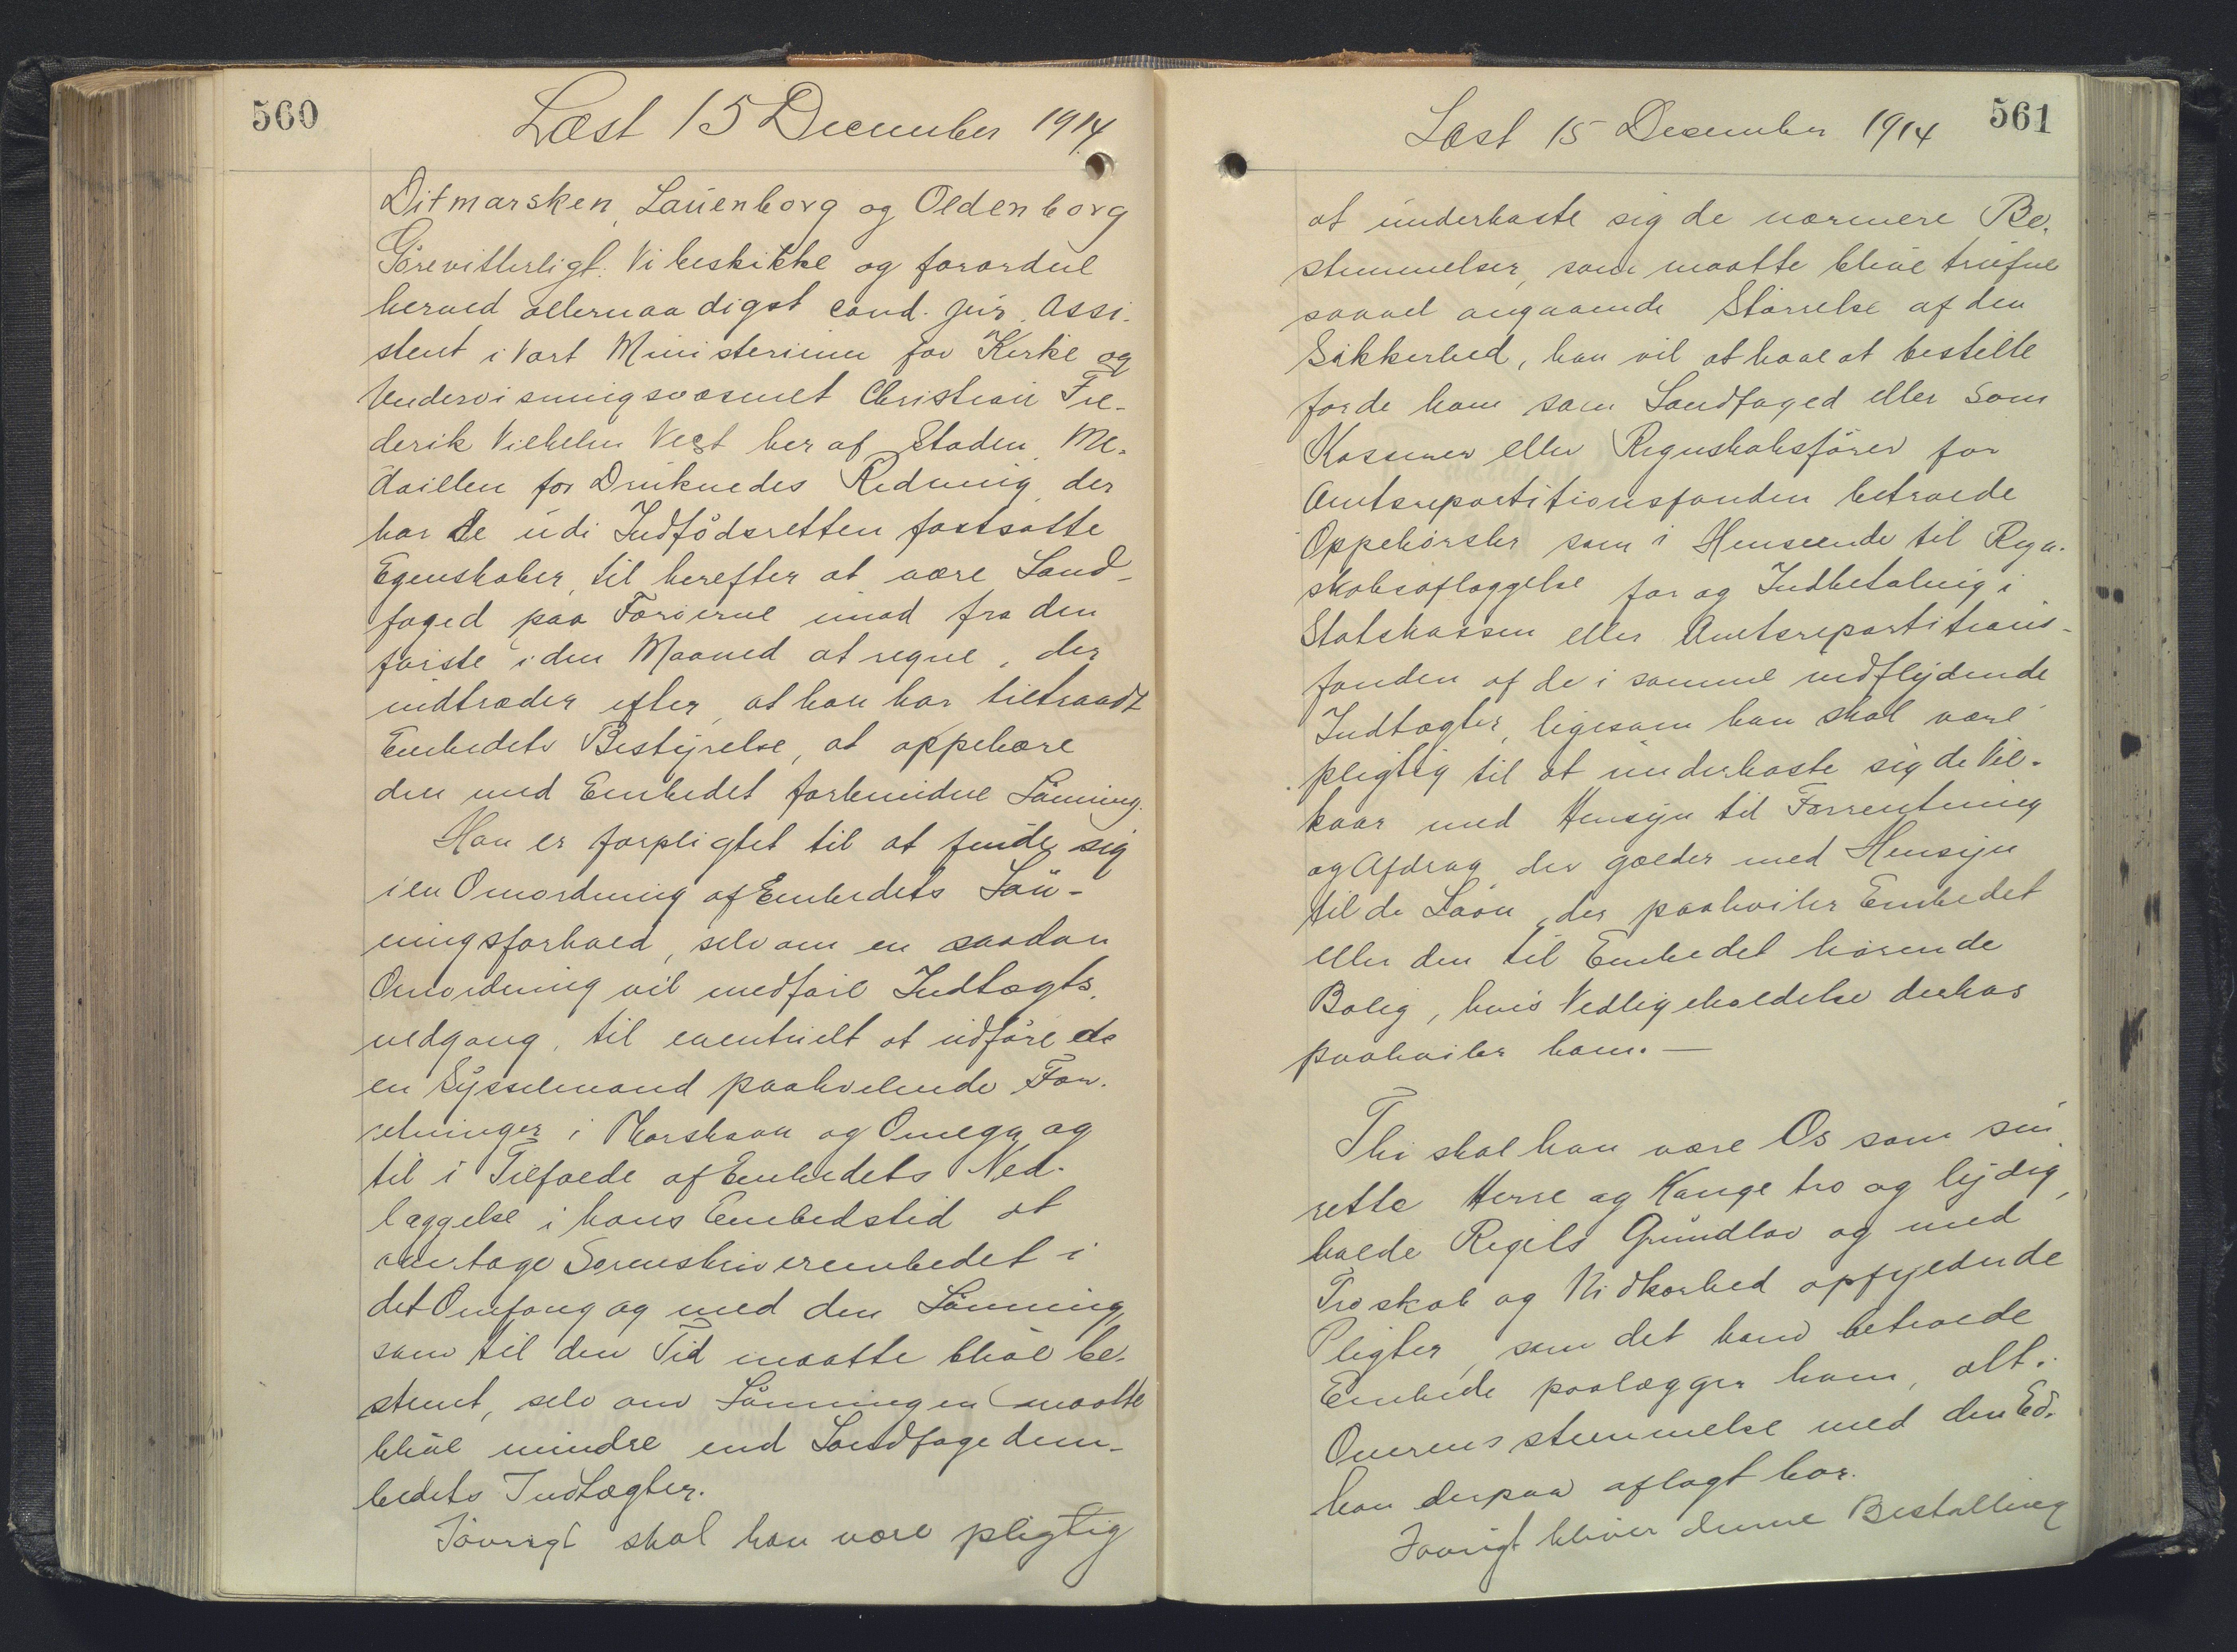 560
Læst 15 December 1914
Ditmarsken, Lauenborg og Oldenborg
Görevitterligt: Vi beskikke og forordne
herved allernaadigst cand. jur. Assi-
stent i Vort Ministerium for Kirke og
Undervisningsvæsnet Christian Fre-
derik Vilhelm Vest her af Staden, Me-
daillen for Druknedes Redning, der
har de udi Indfödsretten fastsatte
Egenskaber, til herefter at være Land-
foged paa Færöerne imod fra den
förste i den Maaned at regne, der
indtræder efter, at han har tiltraadt
Embedets Bestyrelse, at oppebære
den med Embedet forbundne Lönning.
Han er forpligtet til at finde sig
i en Omordning af Embedets Lön-
ningsforhold, selv om en saadan
Omordning vil medföre Indtægts-
nedgang, til eventuelt at udföre de
en Sysselmand paahvilende For-
retninger i Thorshavn og Omegn og
til i Tilfælde af Embedets Ned-
læggelse i hans Embedstid at
overtage Sorenskriverembedet i
det Omfang og med den Lönning,
som til den Tid maatte blive be-
stemt, selv om Lönningen maatte
blive mindre end Landfogedem-
bedets Indtægter.
Iövrigt skal han være pligtig
561
Læst 15 December 1914
at underkaste sig de nærmere Be-
stemmelser, som maatte blive trufne
saavel angaaende Störrelse af den
Sikkerhed, han vil at have at bestille
for de ham som Landfoged eller som
Kasserer eller Regnskabsförer for
Amtsrepartitionsfonden betroede
Oppebörsler som i Henseende til Regn-
skabsaflæggelse for og Indbetaling i
Statskassen eller Amtsrepartitions-
fonden af de i samme indflydende
Indtægter, ligesom han skal være
pligtig til at underkaste sig de Vil-
kaar med Hensyn til Forrentning
og Afdrag der gælder med Hensyn
til de Laan, der paahviler Embedet
eller den til Embedet hörende
Bolig, hvis Vedligeholdelse derhos
paahviler ham.—
Thi skal han være Os som sin
rette Herre og Konge tro og lydig,
holde Rigets Grundlov og med
Troskab og Nidkærhed opfyldende
Pligter, som det ham betroede
Embede paalægger ham, alt i
Overensstemmelse med den Ed,
han derpaa aflagt har.
Iövrigt bliver denne Bestalling